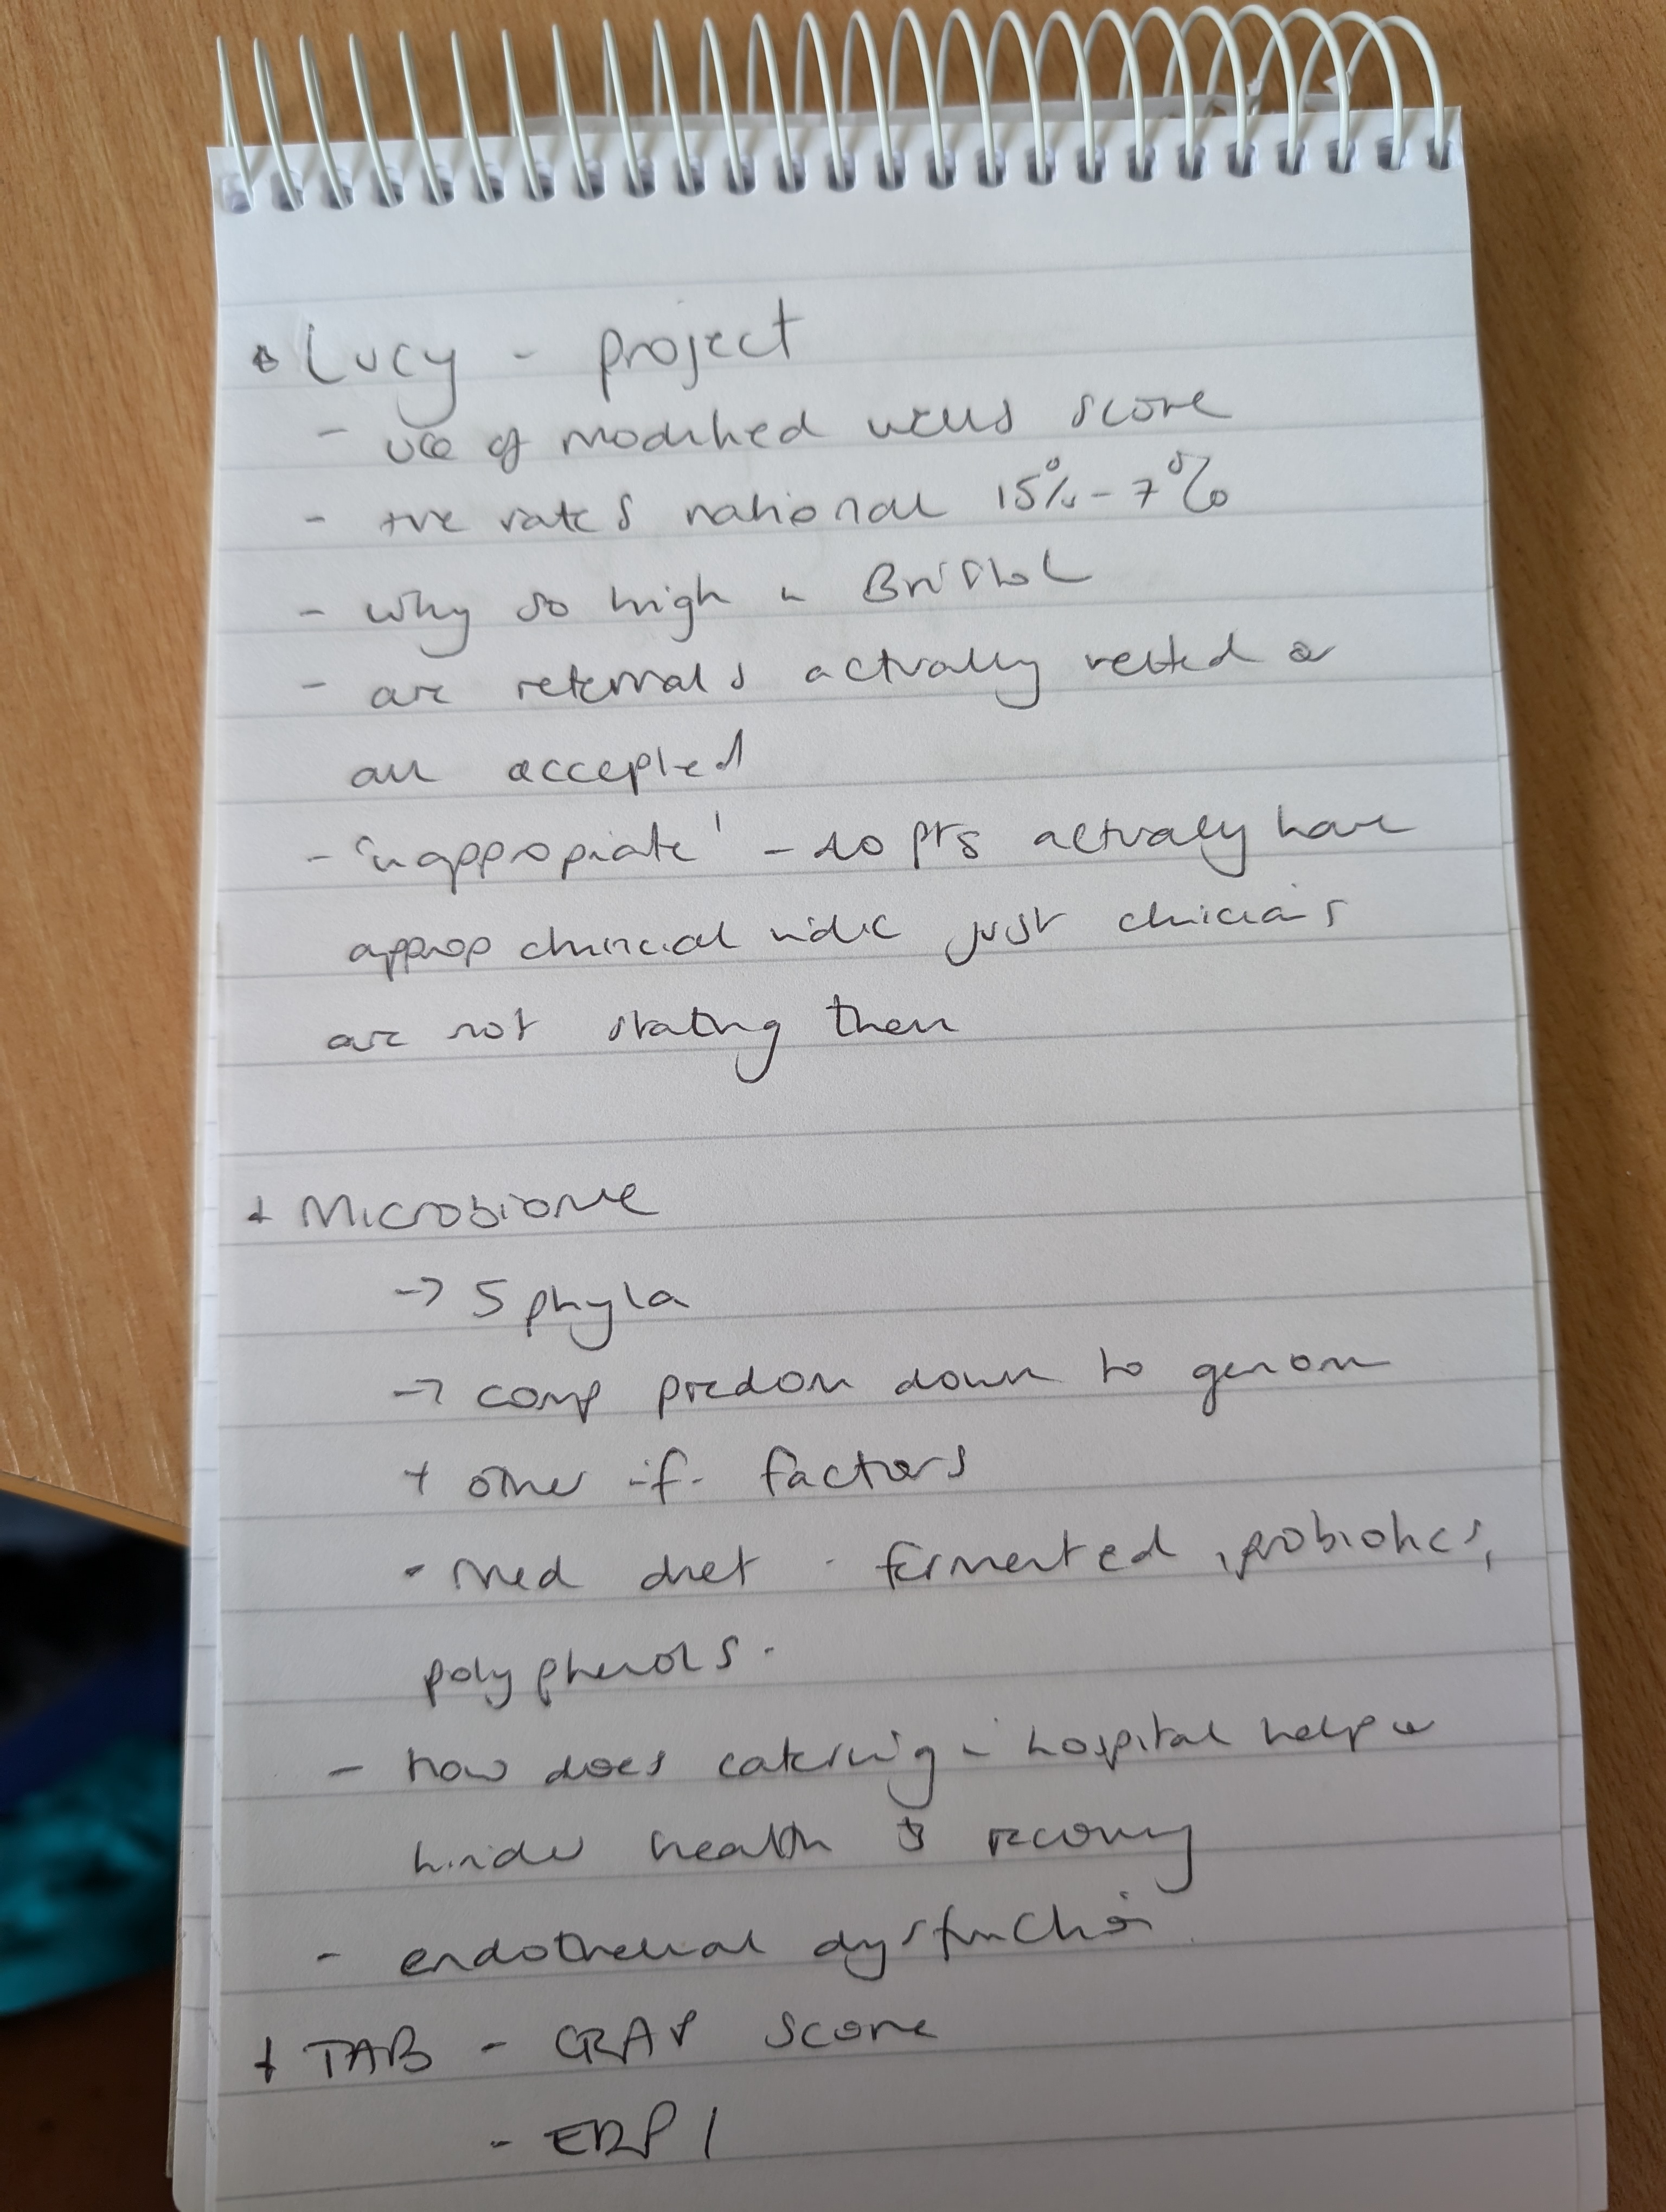 * Lucy - project
- use of modified wells score
- +ve rates national 15% - 7%
- why so high in Bristol
- are referrals actually vetted or
all accepted
- 'inappropiate' - do pts actually have
approp clinical indic just clinicians
are not stating them
+ Microbiome
-> 5 phyla
-> comp predom down to genom
+ other inf. factors
- med diet - fermented, probiotics,
polyphenols.
- how does catering in hospital help or
hinder health & recovery
- endothelial dysfunction
+ TAB - score